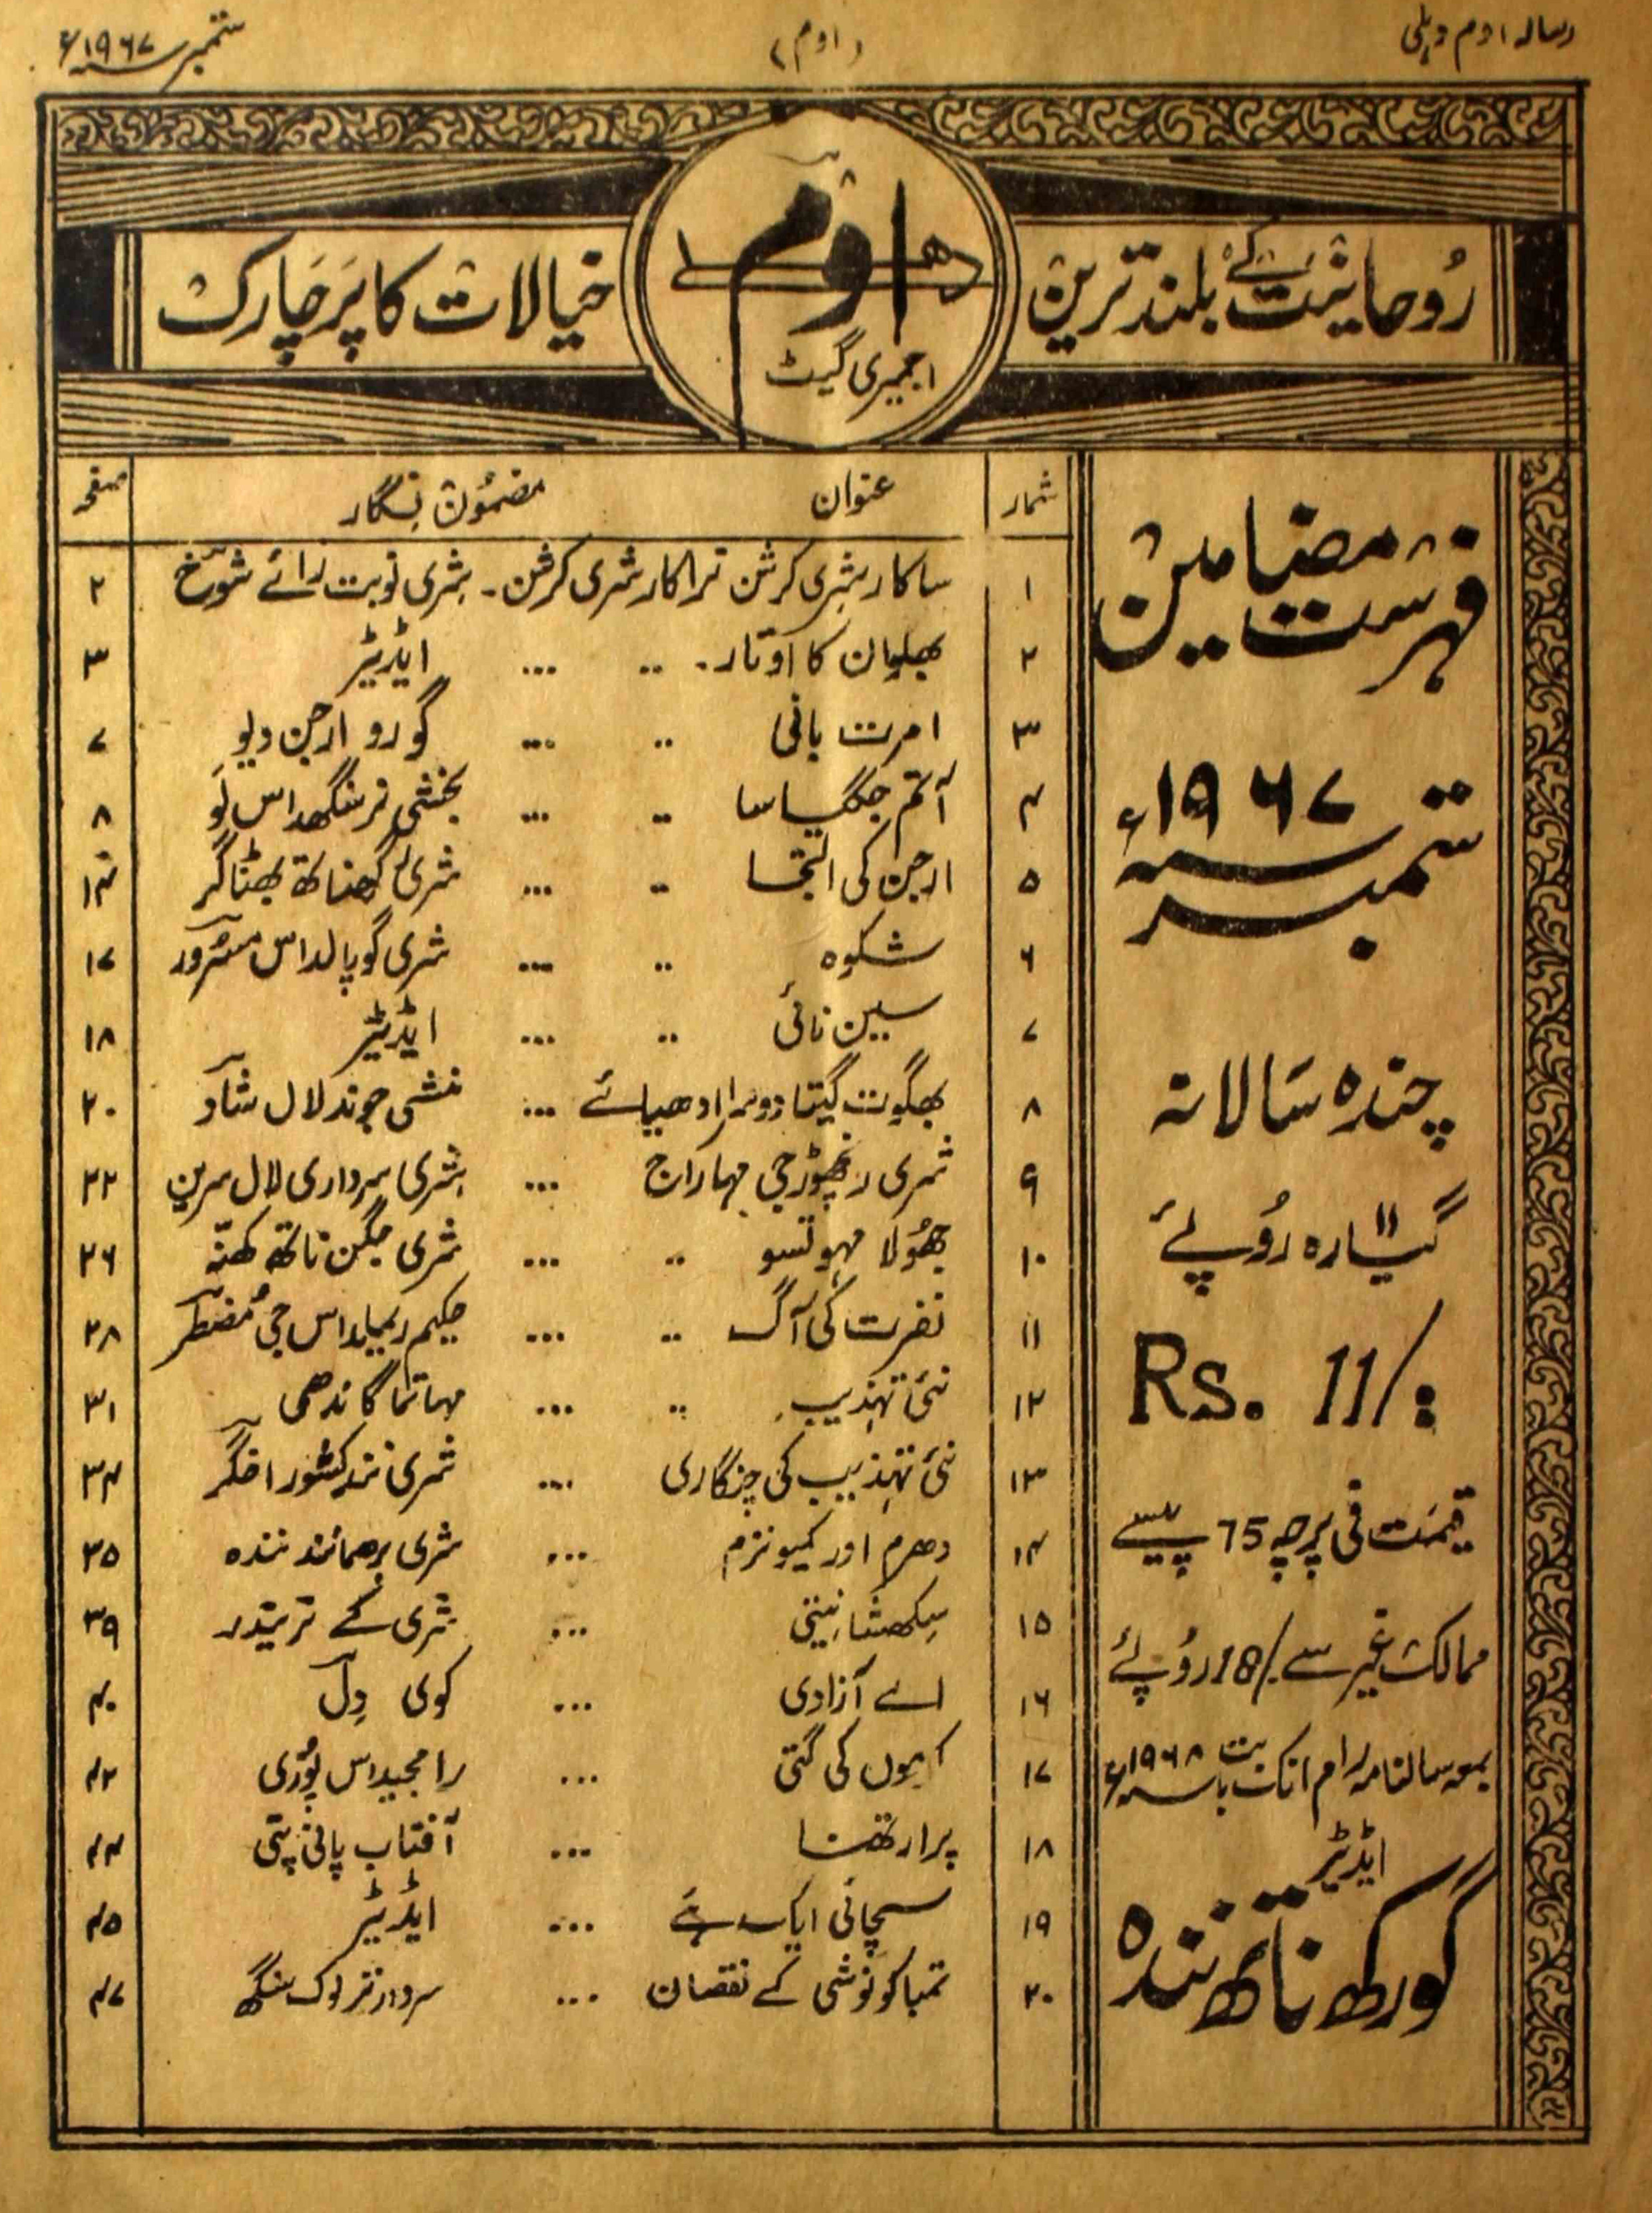 رسالہ اوم دہلی
(اوم)
ستمبر ۱۹۶۷ء
رُوحانیت کے بلند ترین
اوم
دہلی
اجمیری گیٹ
خیالات کا پَرچارک
فہرست مضامین
ستمبر ۱۹۶۷ء
چندہ سَالانہ
گیارہ ۱۱ رُوپئے
Rs. 11/:
قیمت فی پرچہ 75 پیسے
ممالک غیر سے /18 رُوپئے
بمعہ سالنامہ رام انک بابت ۱۹۶۸ء
ایڈیٹر
گورکھ ناتھ نندہ
شمار عنوان مضمُون نگار صفحہ
۱ ساکار شری کرشن نراکار شری کرشن۔ شری نوبت رائے شوخ ۲
۲ بھگوان کا اوتار۔ .. ... ایڈیٹر ۳
۳ امرت بانی .. ... گورو ارجن دیو ۷
۴ آتم جگیاسا .. ... بخشی نرسنگھداس لَو ۸
۵ ارجن کی التجا .. ... شری گھناتھ بھٹناگر ۱۴
۶ شکوہ .. ... شری گوپالداس مسرور ۱۷
۷ سین نائی .. ... ایڈیٹر ۱۸
۸ بھگوت گیتا دوسرا ادھیائے ... منشی چوند لال شاد ۲۰
۹ شری رنچھوڑجی مہاراج ... شری سرداری لال سرین ۲۲
۱۰ جھُولا مہوتسو .. ... شری جگن ناتھ کھنّہ ۲۶
۱۱ نفرت کی آگ .. ... حکیم رمیاداس جی مُضطر ۲۸
۱۲ نئی تہذیب .. ... مہاتما گاندھی ۳۱
۱۳ نئی تہذیب کی چنگاری ... شری نند کشور اخگر ۳۴
۱۴ دھرم اور کمیونزم ... شری برھمانند نندہ ۳۵
۱۵ سِکھشا نیتی ... شری کے نریندر ۳۹
۱۶ اے آزادی ... کوی دِل ۴۰
۱۷ کرموں کی گتی ... رامجیداس پُوری ۴۲
۱۸ پرارتھنا ... آفتاب پانی پتی ۴۴
۱۹ سچائی ایک ہے ... ایڈیٹر ۴۵
۲۰ تمباکو نوشی کے نقصان ... سردار ترلوک سنگھ ۴۷